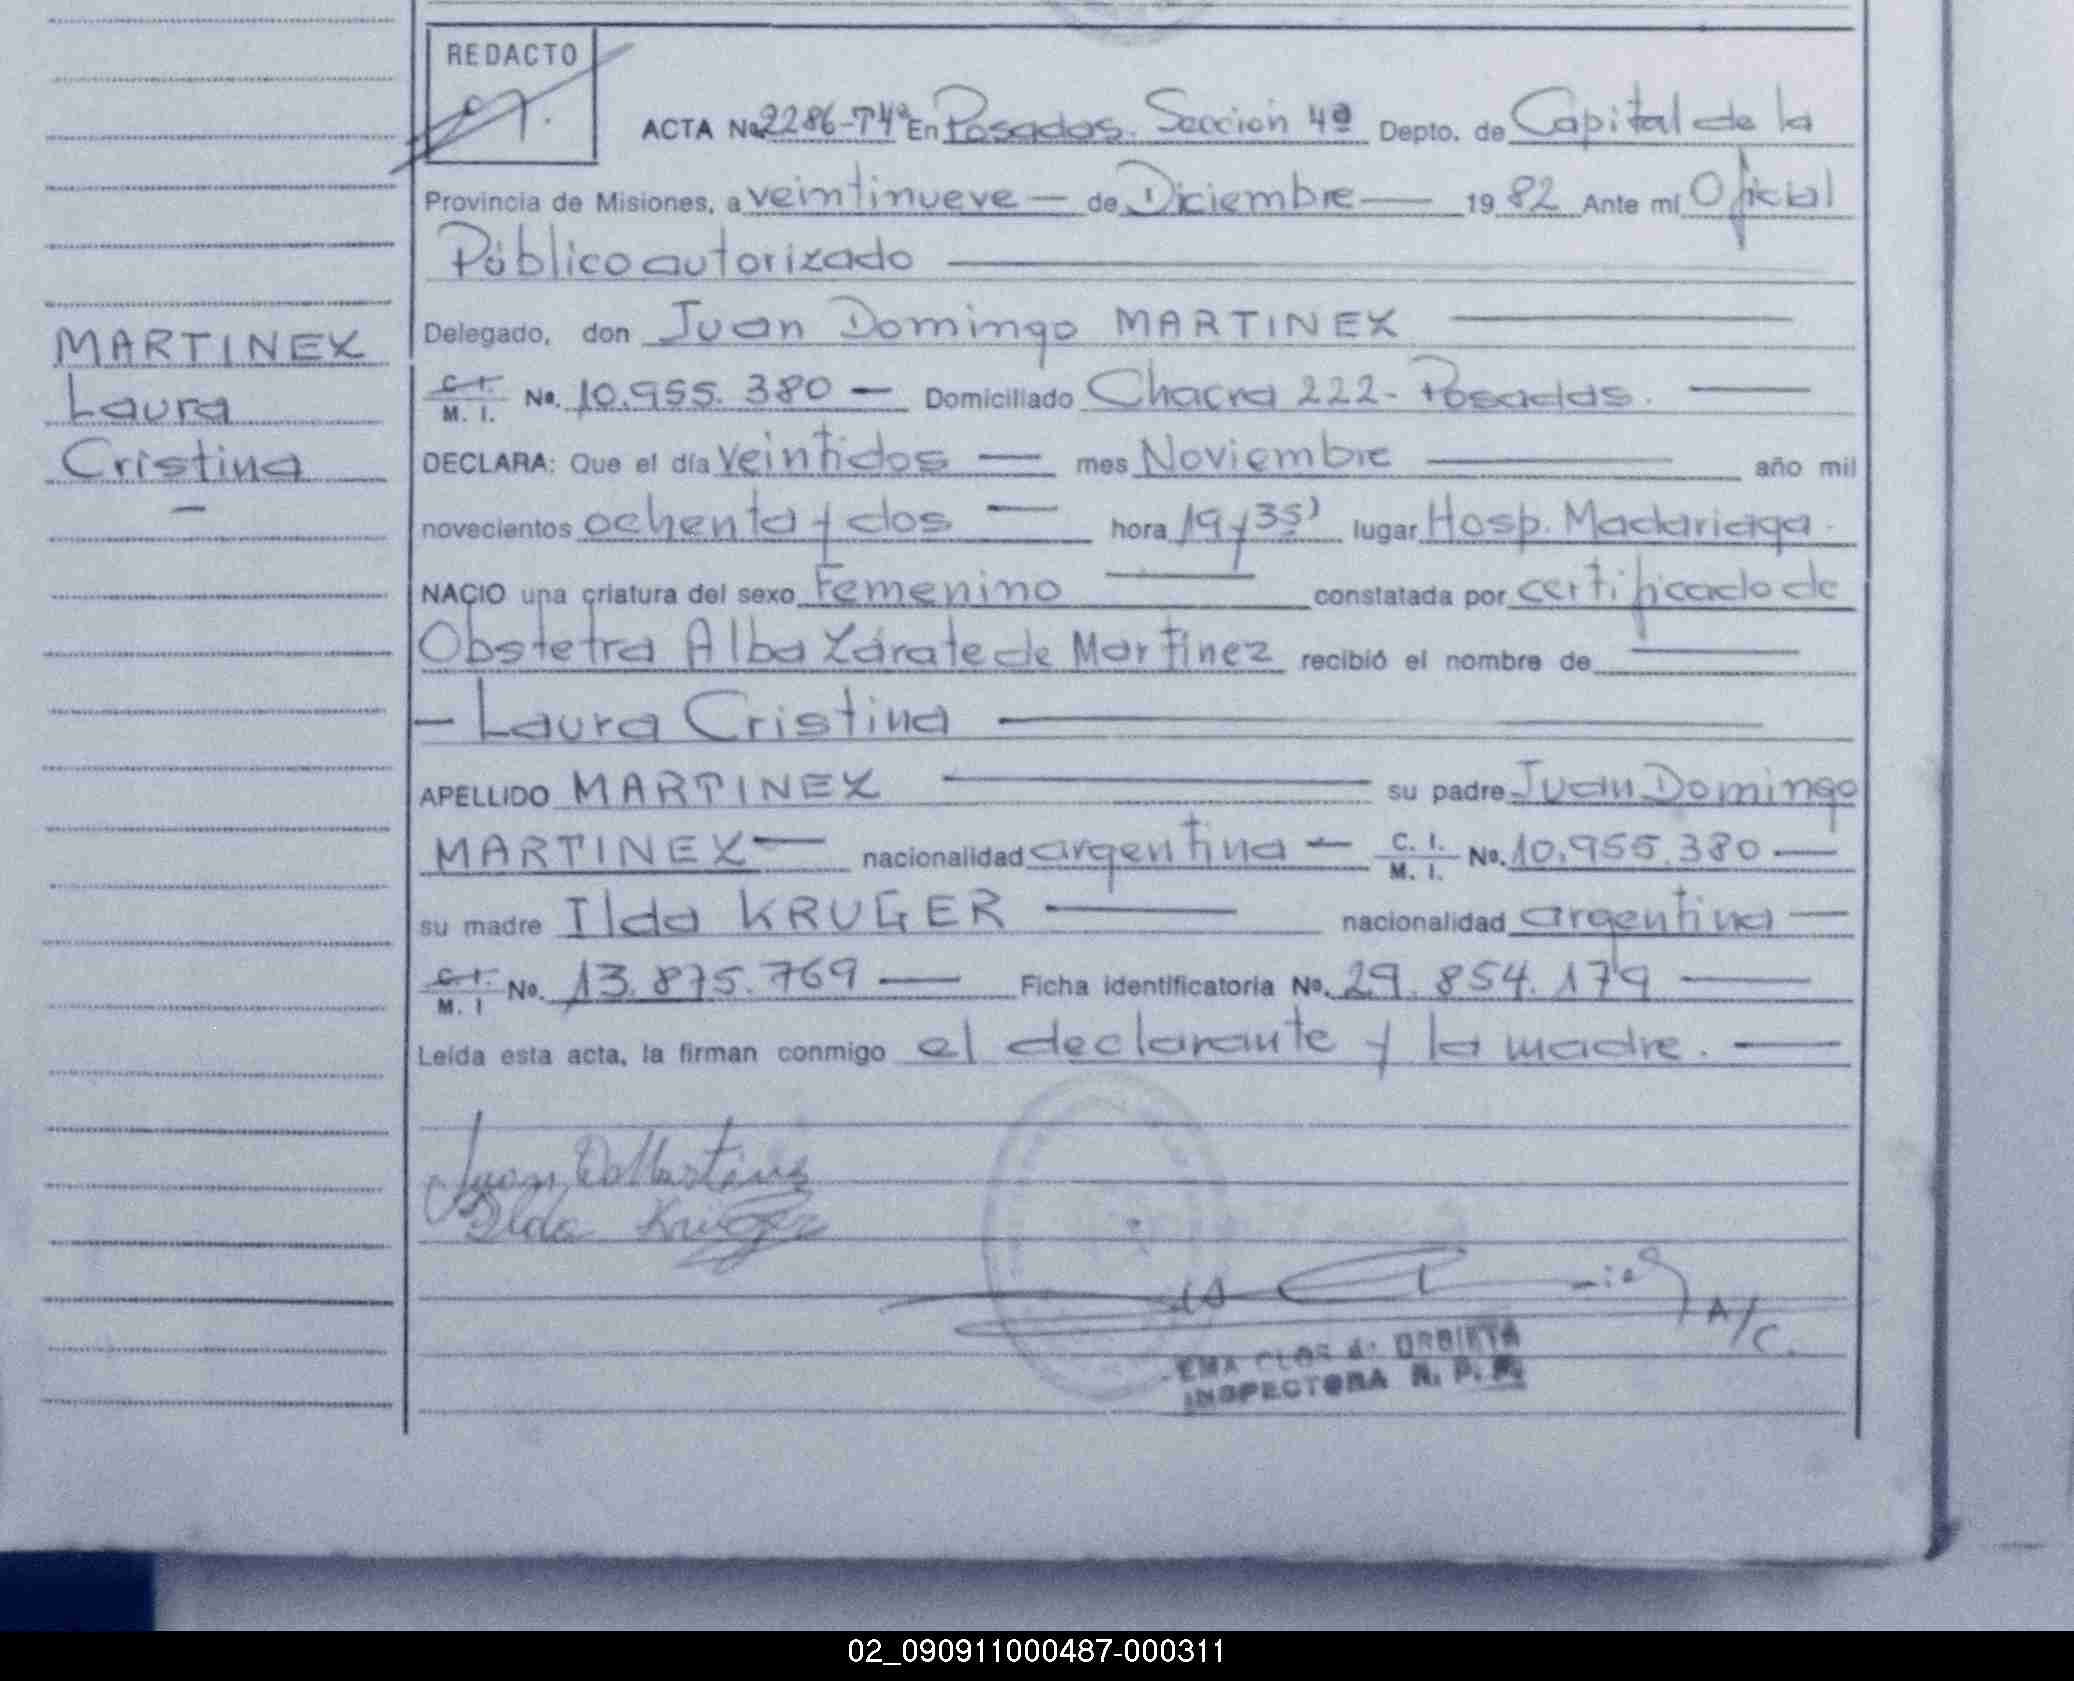 REDACTO
ACTA No. 2286-T4ª En Posadas. Sección 4ª Depto. de Capital de la
Provincia de Misiones, a veintinueve — de Diciembre — 19 82 Ante mí Oficial
Público autorizado
Delegado, don Juan Domingo MARTINEZ
C. I. / M. I. No. 10.955.380 — Domiciliado Chacra 222 - Posadas.
DECLARA: Que el día veintidos — mes Noviembre — año mil
novecientos ochenta y dos — hora 19 y 35' lugar Hosp. Madariaga.
NACIO una criatura del sexo Femenino — constatada por certificado de
Obstetra Alba Zárate de Martínez recibió el nombre de —
— Laura Cristina —
APELLIDO MARTINEZ — su padre Juan Domingo
MARTINEZ — nacionalidad argentina — C. I. / M. I. No. 10.955.380 —
su madre Ilda KRUGER — nacionalidad argentina —
C. I. / M. I No. 13.875.769 — Ficha identificatoria No. 29.854.179 —
Leída esta acta, la firman conmigo el declarante y la madre. —
MARTINEZ
Laura
Cristina
—
Juan D Martinez
Ilda Kruger
A/C.
EMA CLOS de ORBIETA
INSPECTORA R. P. P.
02_090911000487-000311